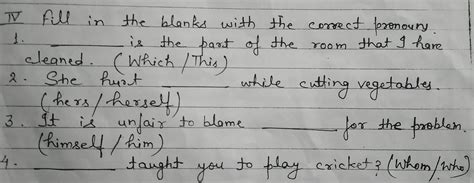 IV Fill in the blanks with the correct pronoun.
1. ________ is the part of the room that I have
cleaned. (Which / This)
2. She hurt ________ while cutting vegetables.
(hers / herself)
3. It is unfair to blame ________ for the problem.
(himself / him)
4. ________ taught you to play cricket? (Whom / Who)